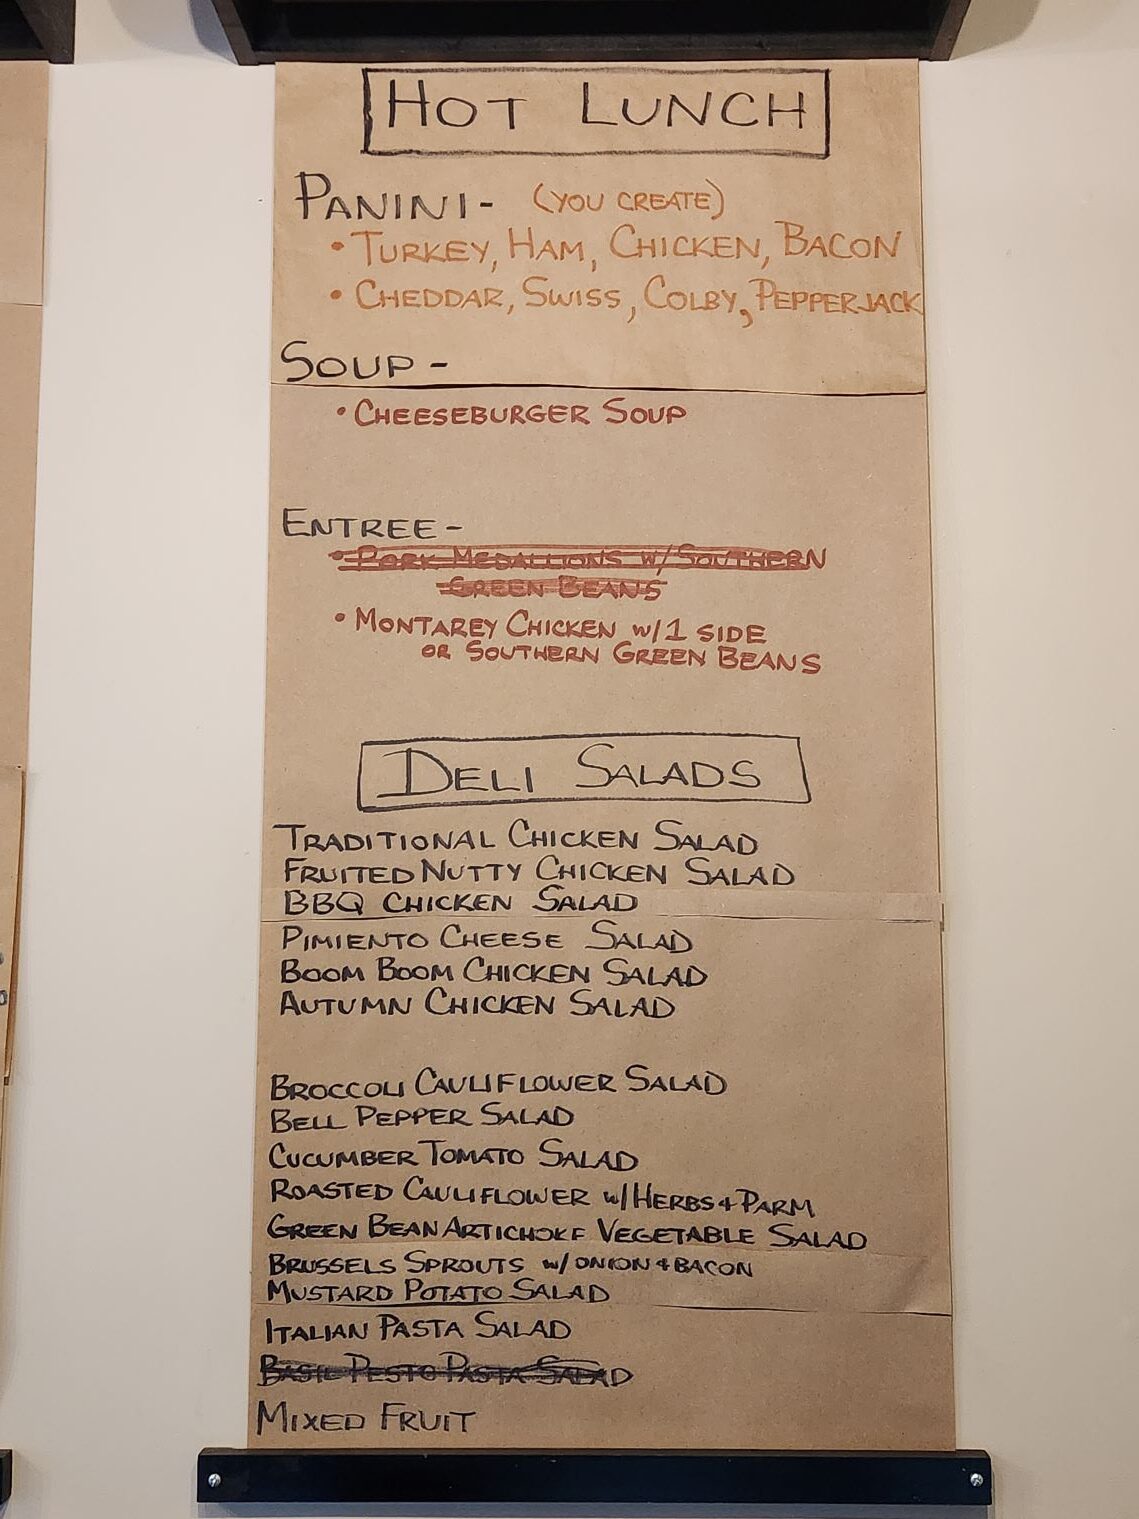 HOT LUNCH
PANINI- (YOU CREATE)
• TURKEY, HAM, CHICKEN, BACON
• CHEDDAR, SWISS, COLBY, PEPPERJACK
SOUP -
• CHEESEBURGER SOUP
ENTREE -
• PORK MEDALLIONS W/SOUTHERN
GREEN BEANS
• MONTAREY CHICKEN W/1 SIDE
OR SOUTHERN GREEN BEANS
DELI SALADS
TRADITIONAL CHICKEN SALAD
FRUITED NUTTY CHICKEN SALAD
BBQ CHICKEN SALAD
PIMIENTO CHEESE SALAD
BOOM BOOM CHICKEN SALAD
AUTUMN CHICKEN SALAD
BROCCOLI CAULIFLOWER SALAD
BELL PEPPER SALAD
CUCUMBER TOMATO SALAD
ROASTED CAULIFLOWER W/HERBS & PARM
GREEN BEAN ARTICHOKE VEGETABLE SALAD
BRUSSELS SPROUTS W/ ONION & BACON
MUSTARD POTATO SALAD
ITALIAN PASTA SALAD
BASIL PESTO PASTA SALAD
MIXED FRUIT